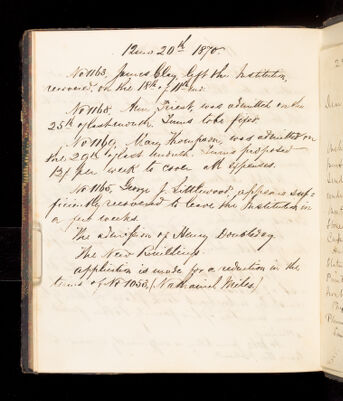 12mo 20th 1870
No 1163, James Clay left the Institution,
recovered on the 18th of 11th mo.
No 1168, Ann Priest was admitted on the
25th of last month. Terms to be fixed
No 1169, Mary Thompson, was admitted on
the 29th of last month. Terms proposed
13/ per week to cover all expenses.
No 1165, George J. Littlewood, appears suf-
ficiently recovered to leave the Institution in
a few weeks.
The admission of Mary Doubleday
The New Buildings.
Application is made for a reduction in the
terms of No 1053, (Nathaniel Miles)